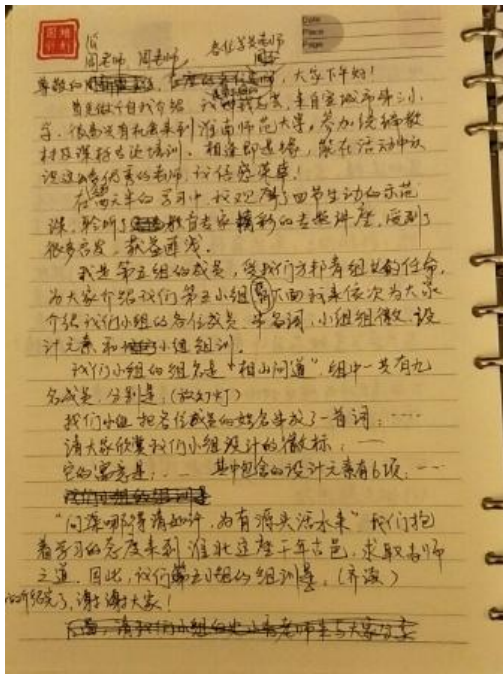 Date
Place
Page
周老师，周老师，各位学员老师
尊敬的，大家下午好！
首先做个自我介绍，我，来自宣城市第三小
学，很高兴有机会来到淮南师范大学，参加统编教
材及课标专题培训。相逢即是缘，能在活动中认
识这么多优秀的老师，我倍感荣幸！
在两天半的学习中，我观摩了四节生动的示范
课，聆听了教育专家精彩的专题讲座，受到了
很多启发，获益匪浅。
我是第五组的成员，受我们方朴青组长的任命，
为大家介绍我们第五小组，下面我来依次为大家
介绍我们小组的各位成员、串名词、小组组徽、设
计元素和小组组训。
我们小组的组名是“相山问道”，组中一共有九
名成员，分别是，（放幻灯）
我们小组把各位成员的姓名串成了一首词：……
请大家欣赏我们小组设计的徽标：……
它的寓意是：…… 其中包含的设计元素有6项：……
我们小组的组训是
“问渠哪得清如许，为有源头活水来”我们抱
着学习的态度来到淮北这座千年古邑，求取为师
之道。因此，我们第五小组的组训是，（齐读）
介绍完了，谢谢大家！